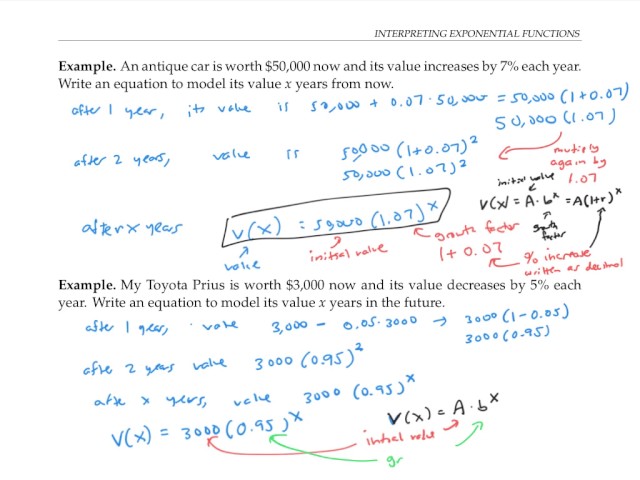 INTERPRETING EXPONENTIAL FUNCTIONS
Example. An antique car is worth $50,000 now and its value increases by 7% each year.
Write an equation to model its value x years from now.
after 1 year, its value is 50,000 + 0.07·50,000 = 50,000 (1+0.07)
50,000 (1.07)
after 2 years, value is 50,000 (1+0.07)²
50,000 (1.07)²
multiply again by 1.07
initial value
V(x) = A·bˣ = A(1+r)ˣ
growth factor
after x years V(x) = 50,000 (1.07)ˣ
value
initial value
growth factor
1 + 0.07
% increase written as decimal
Example. My Toyota Prius is worth $3,000 now and its value decreases by 5% each
year. Write an equation to model its value x years in the future.
after 1 year, value 3,000 − 0.05·3000 → 3000 (1-0.05)
3000 (0.95)
after 2 years value 3000 (0.95)²
after x years, value 3000 (0.95)ˣ
V(x) = 3000 (0.95)ˣ
V(x) = A·bˣ
initial value
gr